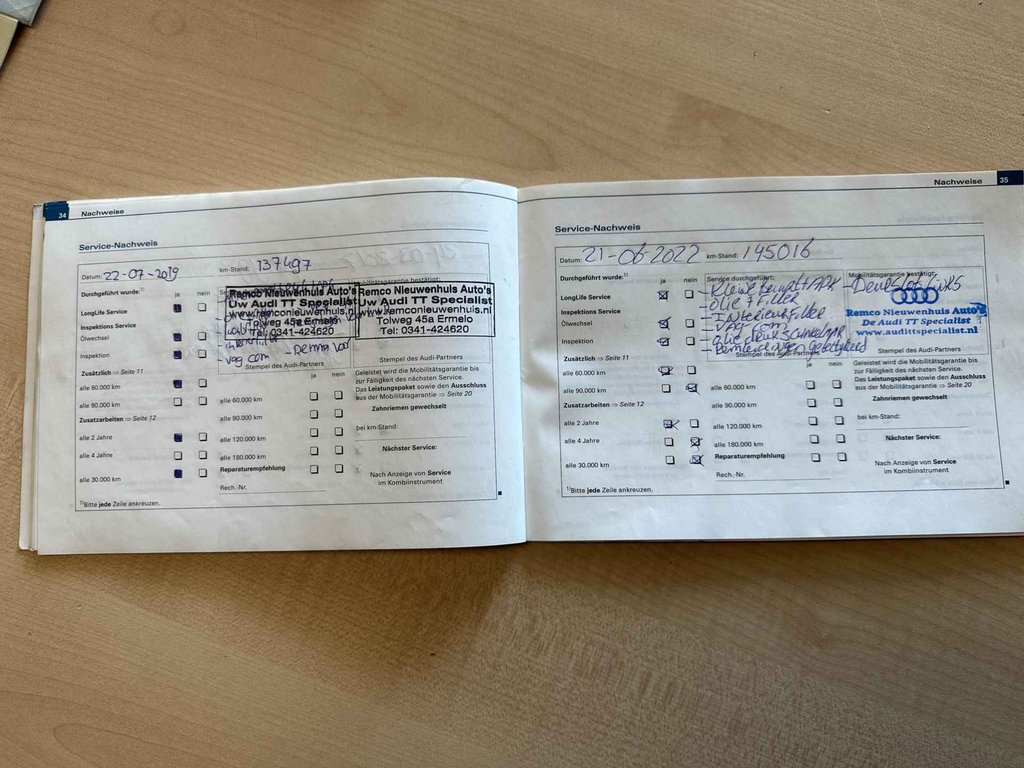 34 Nachweise
Service-Nachweis
Datum: 22-07-2019 km-Stand: 137497
Durchgeführt wurde:¹⁾
ja nein
LongLife Service
Inspektions Service
Ölwechsel
Inspektion
Remco Nieuwenhuis Auto's
Uw Audi TT Specialist
www.remconieuwenhuis.nl
Tolweg 45a Ermelo
Tel: 0341-424620
Remco Nieuwenhuis Auto's
Uw Audi TT Specialist
www.remconieuwenhuis.nl
Tolweg 45a Ermelo
Tel: 0341-424620
- vag com
Stempel des Audi-Partners
Zusätzlich ⇒ Seite 11
ja nein
alle 60.000 km
alle 90.000 km
Zusatzarbeiten ⇒ Seite 12
alle 2 Jahre
alle 4 Jahre
alle 30.000 km
alle 60.000 km
alle 90.000 km
alle 120.000 km
alle 180.000 km
Reparaturempfehlung
Rech.-Nr.
Geleistet wird die Mobilitätsgarantie bis
zur Fälligkeit des nächsten Service.
Das Leistungspaket sowie den Ausschluss
aus der Mobilitätsgarantie ⇒ Seite 20
Zahnriemen gewechselt
bei km-Stand:
Nächster Service:
Nach Anzeige von Service
im Kombiinstrument
¹⁾Bitte jede Zeile ankreuzen.
Nachweise 35
Service-Nachweis
Datum: 21-06-2022 km-Stand: 145016
Durchgeführt wurde:¹⁾
ja nein
LongLife Service
Inspektions Service
Ölwechsel
Inspektion
Service durchgeführt:
- Kleine beurt + APK
- olie + Filter
- Interieurfilter
- Vag com
Stempel des Audi-Partners
Mobilitätsgarantie bestätigt:
Remco Nieuwenhuis Auto's
De Audi TT Specialist
www.audittspecialist.nl
Stempel des Audi-Partners
Zusätzlich ⇒ Seite 11
ja nein
alle 60.000 km
alle 90.000 km
Zusatzarbeiten ⇒ Seite 12
alle 2 Jahre
alle 4 Jahre
alle 30.000 km
alle 60.000 km
alle 90.000 km
alle 120.000 km
alle 180.000 km
Reparaturempfehlung
Rech.-Nr.
Geleistet wird die Mobilitätsgarantie bis
zur Fälligkeit des nächsten Service.
Das Leistungspaket sowie den Ausschluss
aus der Mobilitätsgarantie ⇒ Seite 20
Zahnriemen gewechselt
bei km-Stand:
Nächster Service:
Nach Anzeige von Service
im Kombiinstrument
¹⁾Bitte jede Zeile ankreuzen.